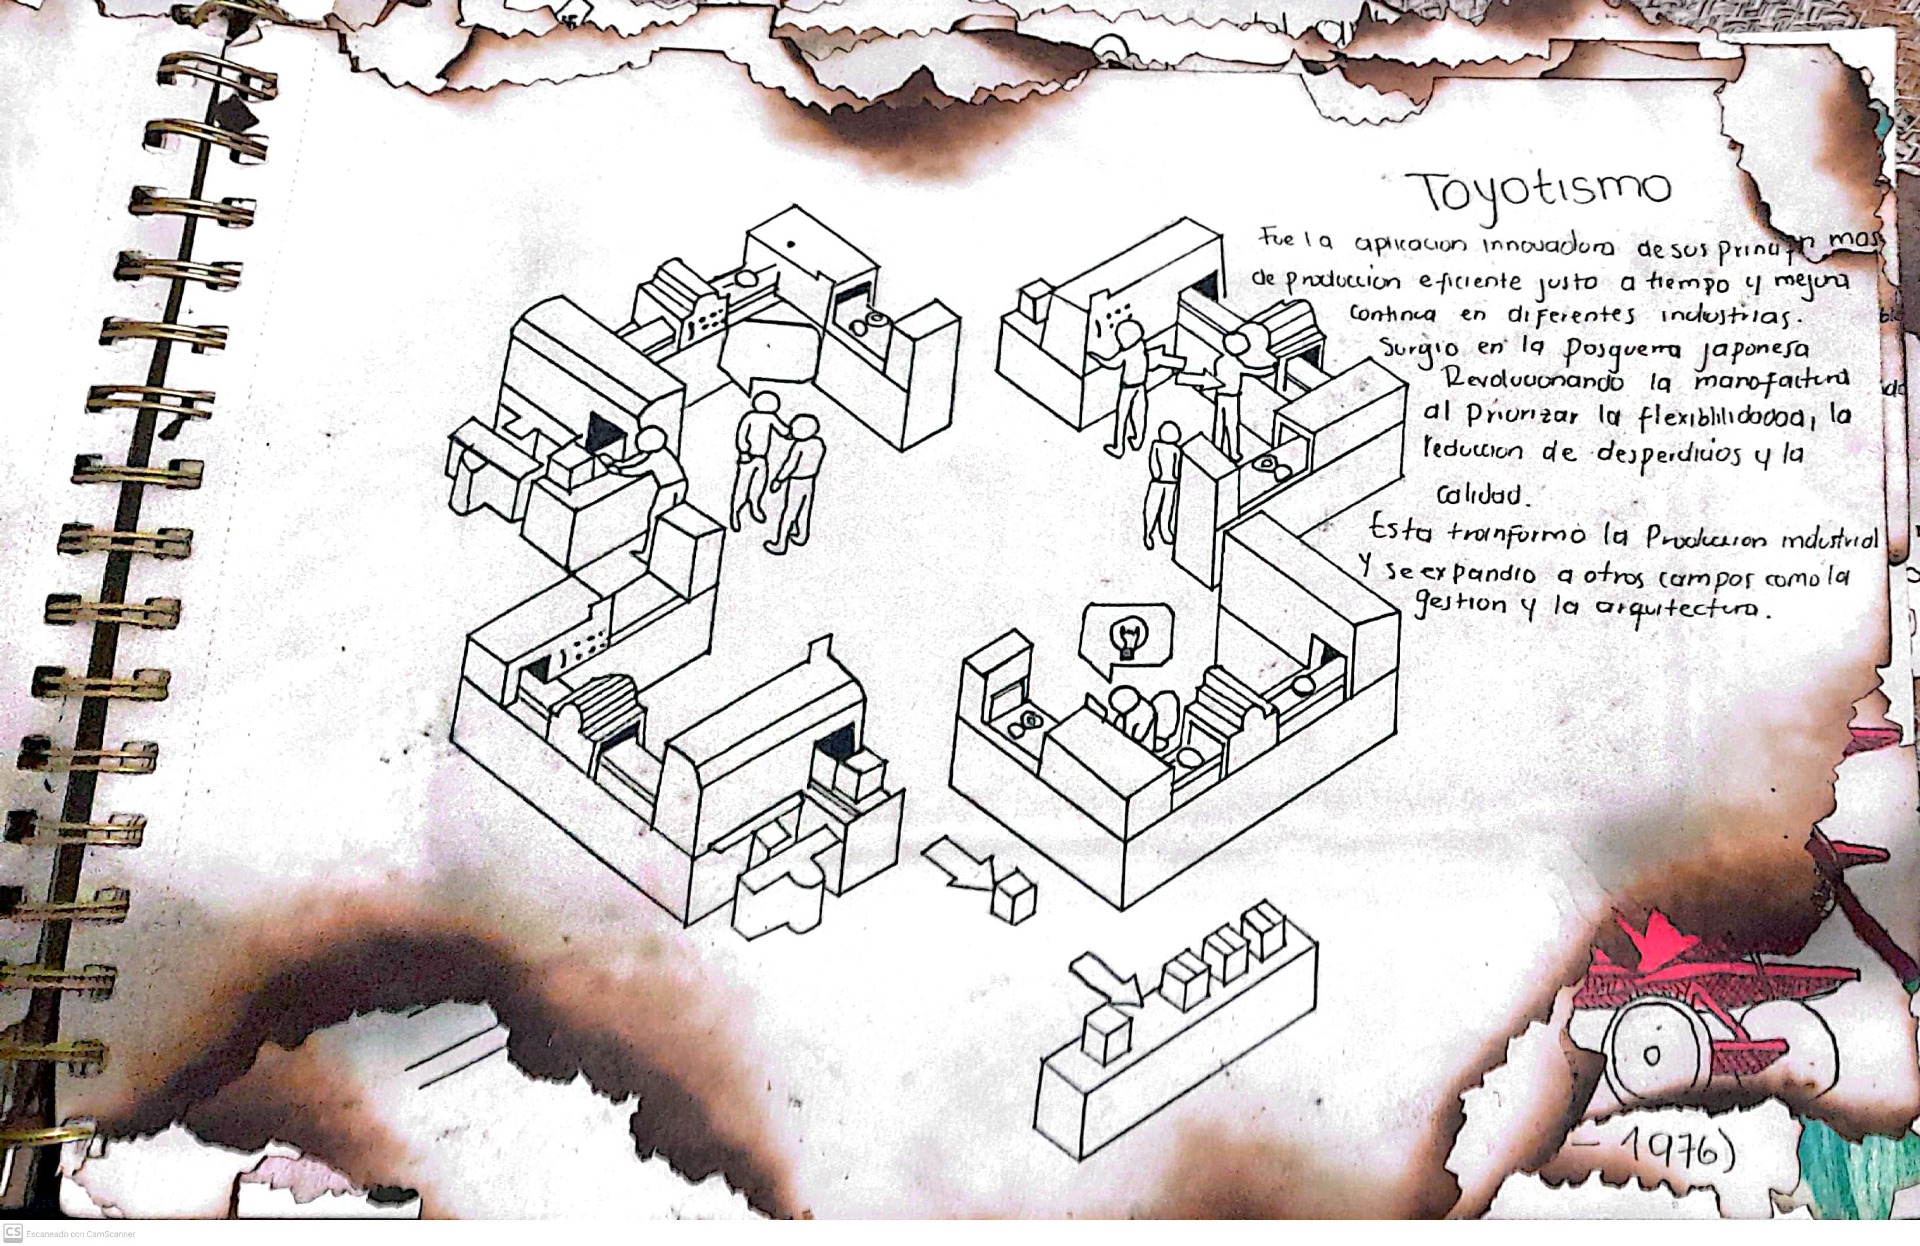 Toyotismo
Fue la aplicacion innovadora de sus
de produccion eficiente justo a tiempo y mejora
continua en diferentes industrias.
Surgio en la Posguerra japonesa
Revolucionando la manofactura
al Priorizar la flexiblilidadad, la
reduccion de desperdicios y la
calidad.
Esta tranformo la Produccion industrial
Y se expandio a otros campos como la
gestion y la arquitectura.
- 1976)
CS Escaneado con CamScanner